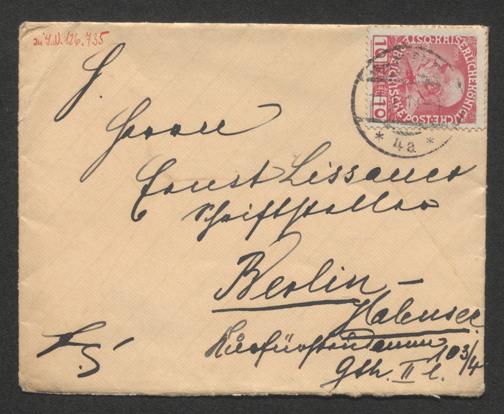 zu I.N. 126.735
KAISERLICHE KÖNIGLICHE
ÖSTERREICHISCHE POST
10 HELLER 10
* 4a *
S.
Herrn
Ernst Lissauer
Schriftsteller
Berlin-
Halensee
Kurfürstendamm 103/4
Gth. II l.